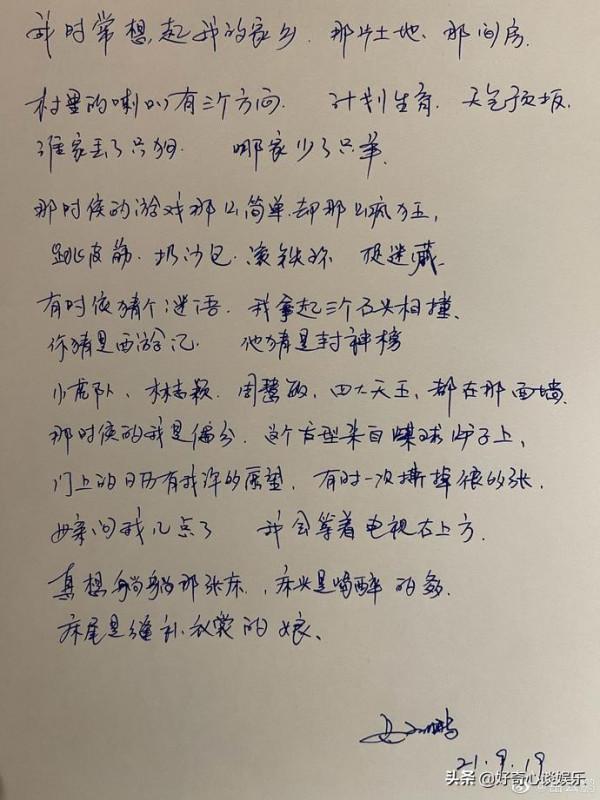 我时常想起我的家乡.那片土地、那间房.
村里的喇叭有三个方向. 计划生育. 天气预报.
谁家丢了只狗 哪家少了只羊.
那时候的游戏那么简单.却那么疯狂,
跳皮筋. 扔沙包. 滚铁环 捉迷藏.
有时候猜个谜语. 我拿起三个石头相撞、
你猜是西游记. 他猜是封神榜
小虎队、林志颖. 周慧敏, 四大天王, 都在那面墙.
那时候的我是偏分. 这个发型来自煤球炉子上,
门上的日历有我许的愿望. 有时一次撕掉很多张.
母亲问我几点了 我会等着电视右上方.
真想躺躺那张床., 床头是喝醉的爹.
床尾是缝补衣裳的娘、
21.9.19
头条 @好奇心谈娱乐